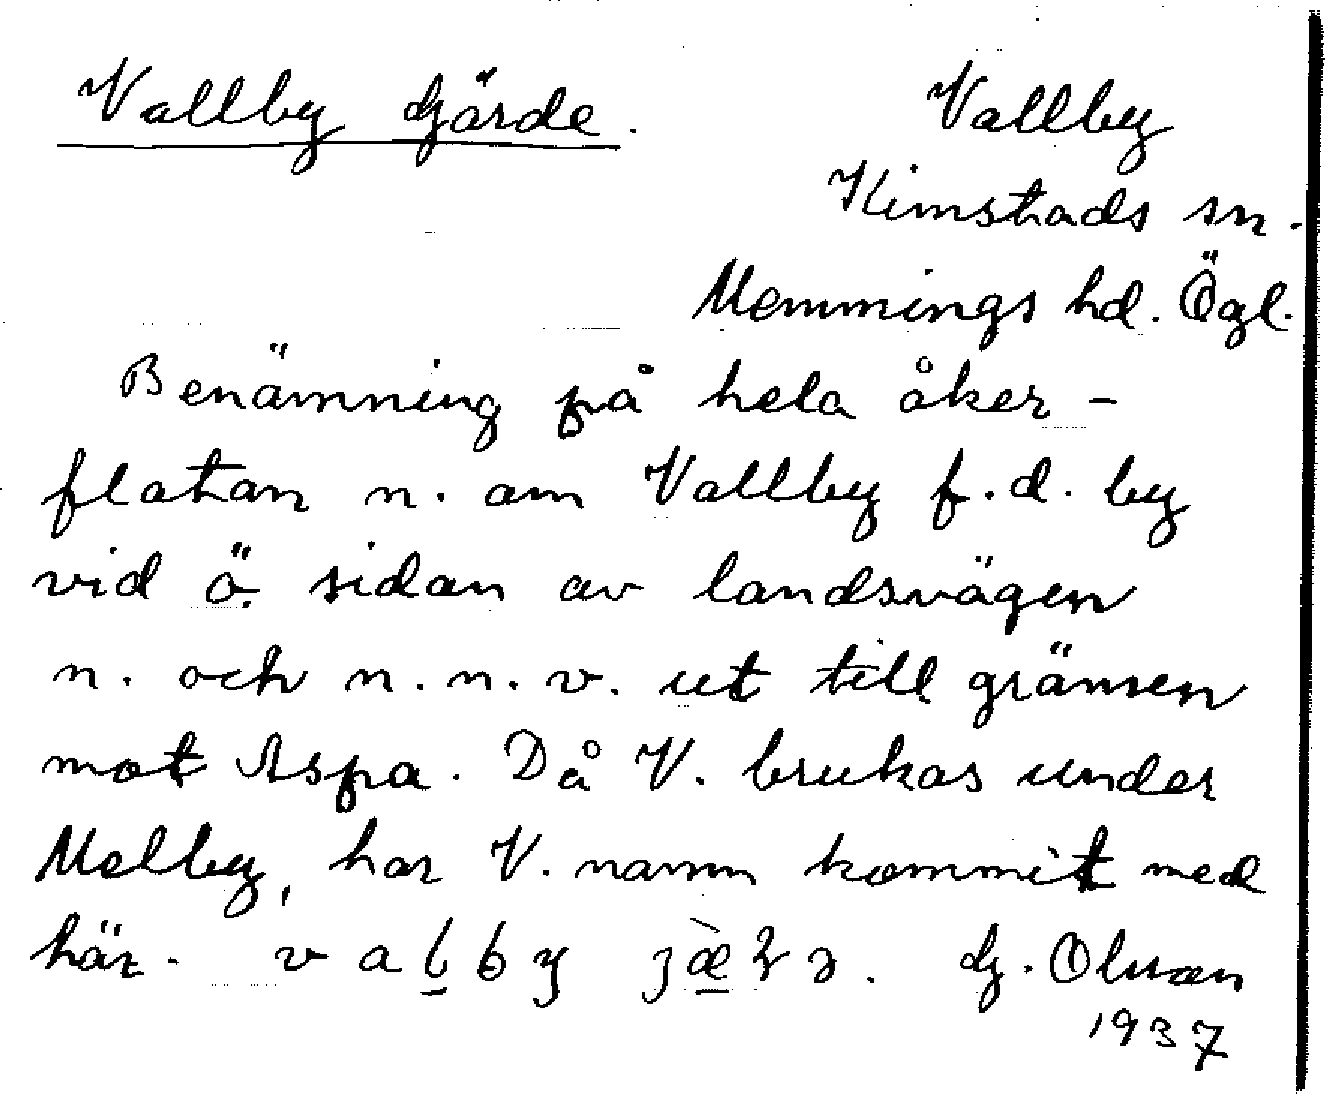 Vallby Gärde. Vallby
Kimstads sn.
Memmings hd. Ögl.
Benämning på hela åker-
flatan n. om Vallby f.d. by
vid ö. sidan av landsvägen
n. och n.n.v. ut till gränsen
mot Aspa. Då V. brukas under
Melby, har V. namn kommit med
här. G. Olsson
1937